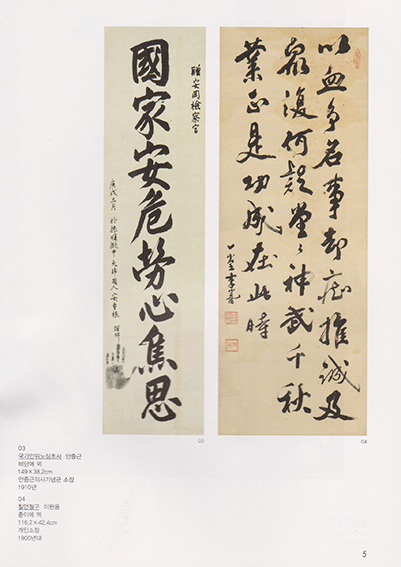 贈安岡檢察官
國家安危勞心焦思
庚戌三月 於旅順獄中 大韓國人 安重根 謹拜
以血争名事却痴推誠及
衆復何疑堂々神武千秋
業正是功成在此時
一堂李完用
03
04
03
국가안위노심초사 안중근
비단에 먹
149×38.2cm
안중근의사기념관 소장
1910년
04
칠언절구 이완용
종이에 먹
116.2×42.4cm
개인소장
1900년대
5